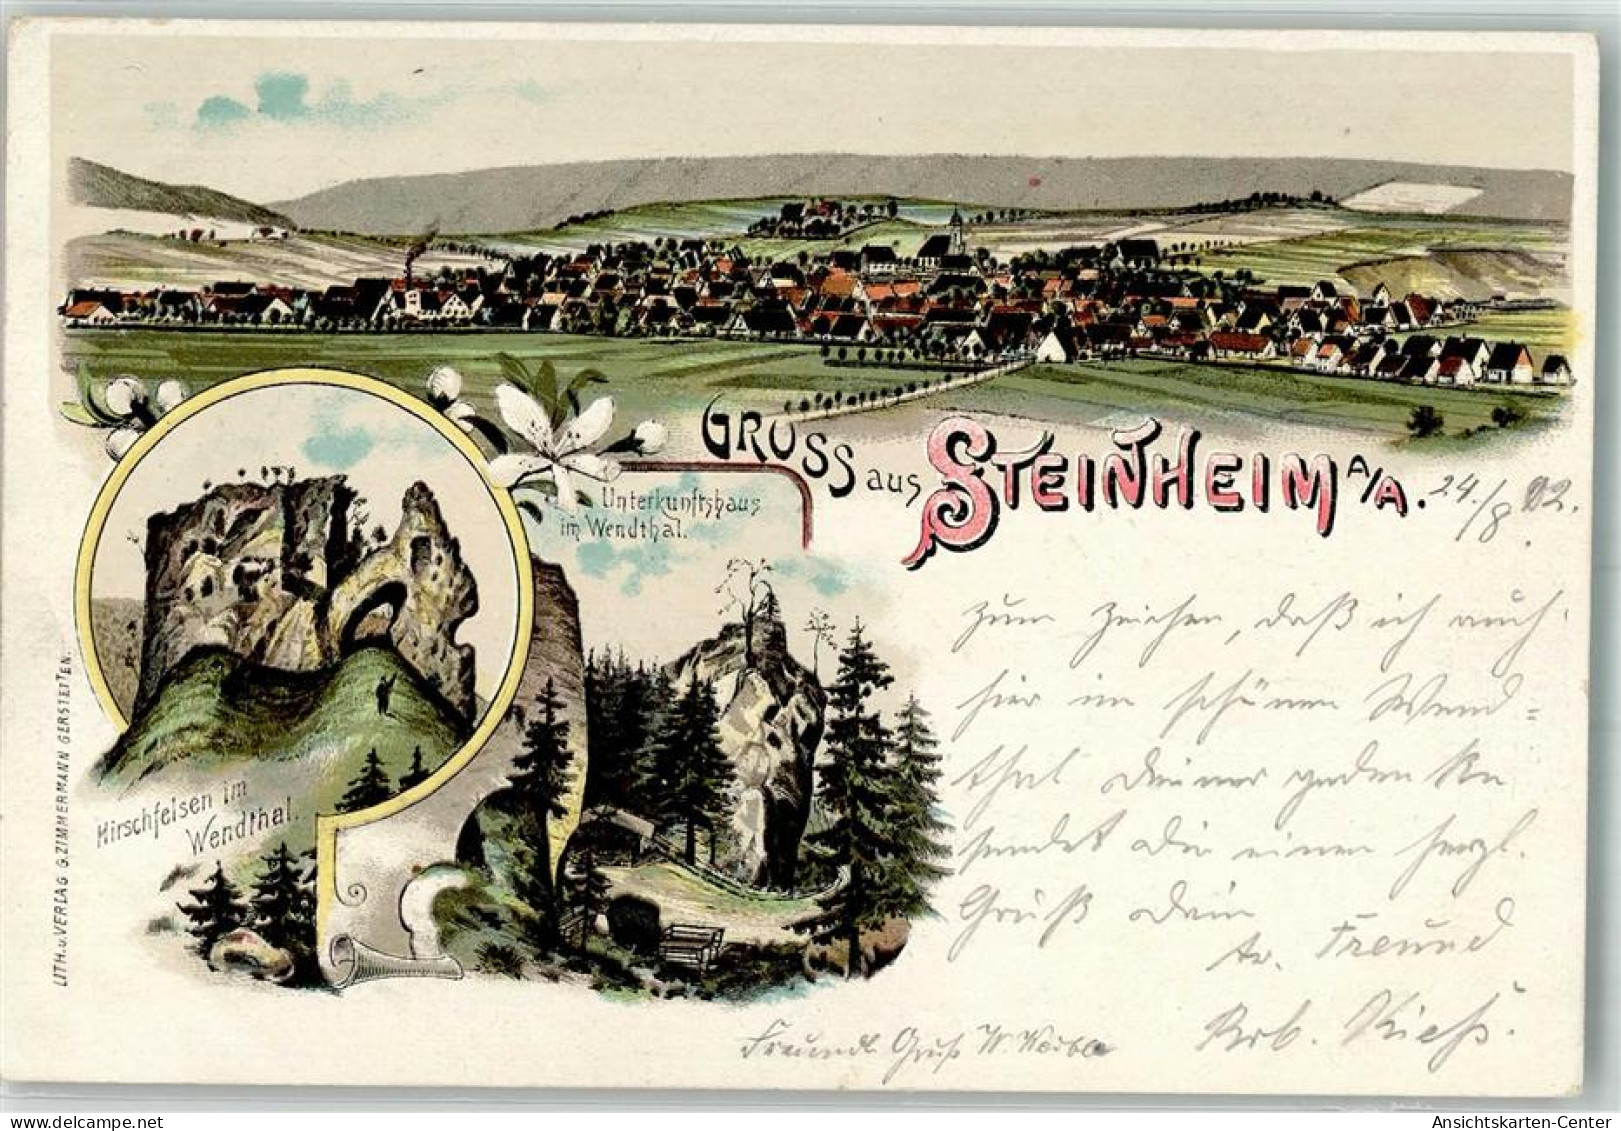 GRUSS aus STEINHEIM A/A.
24./8. 02.
Unterkunftshaus
im Wendthal.
Hirschfelsen im
Wendthal.
LITH. u. VERLAG G. ZIMMERMANN GERSTETTEN.
zum Zeichen, daß ich auch
hier im schönen Wend=
thal Deiner
sendet Dir einen herzl.
Gruß Dein
tr. Freund
Rob.
Freundl. Gruß W.
Ansichtskarten-Center
www.delcampe.net